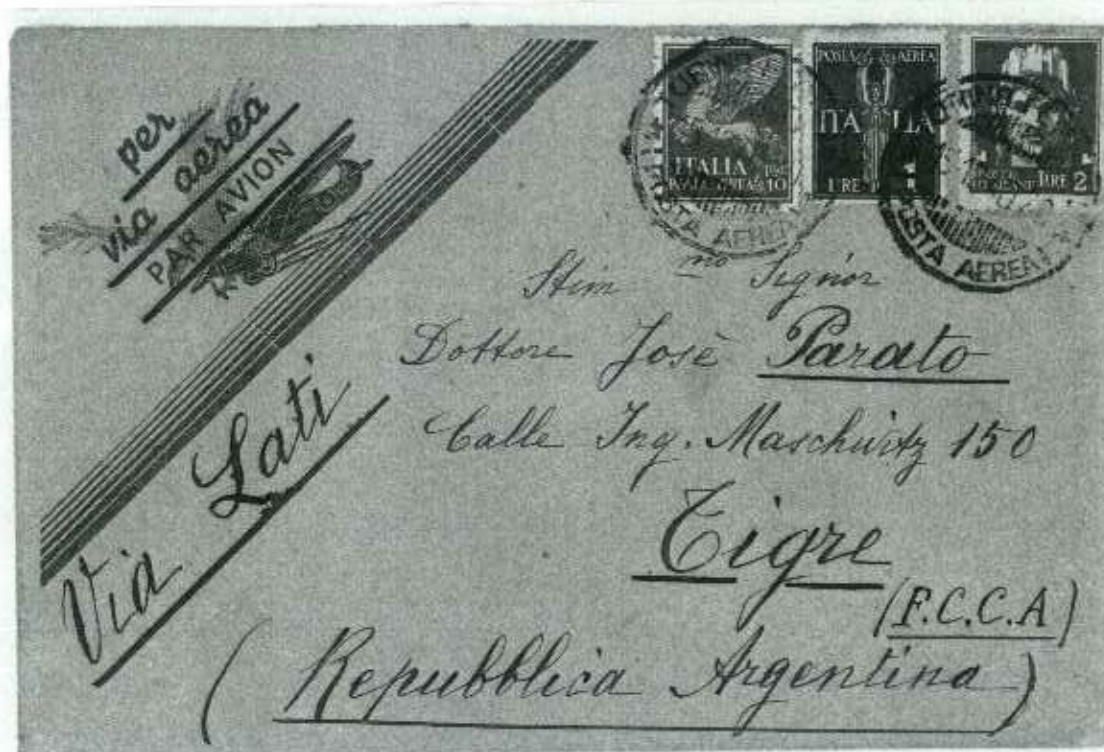 per
via aerea
PAR AVION
ITALIA LIRE
POSTA AEREA 10
POSTA AEREA
ITALIA
LIRE 1
LIRE 2
POSTA AEREA
POSTA AEREA
Stim mo Signor
Dottore José Parato
Calle Ing. Maschwitz 150
Tigre
(F.C.C.A)
(Repubblica Argentina)
Via Lati